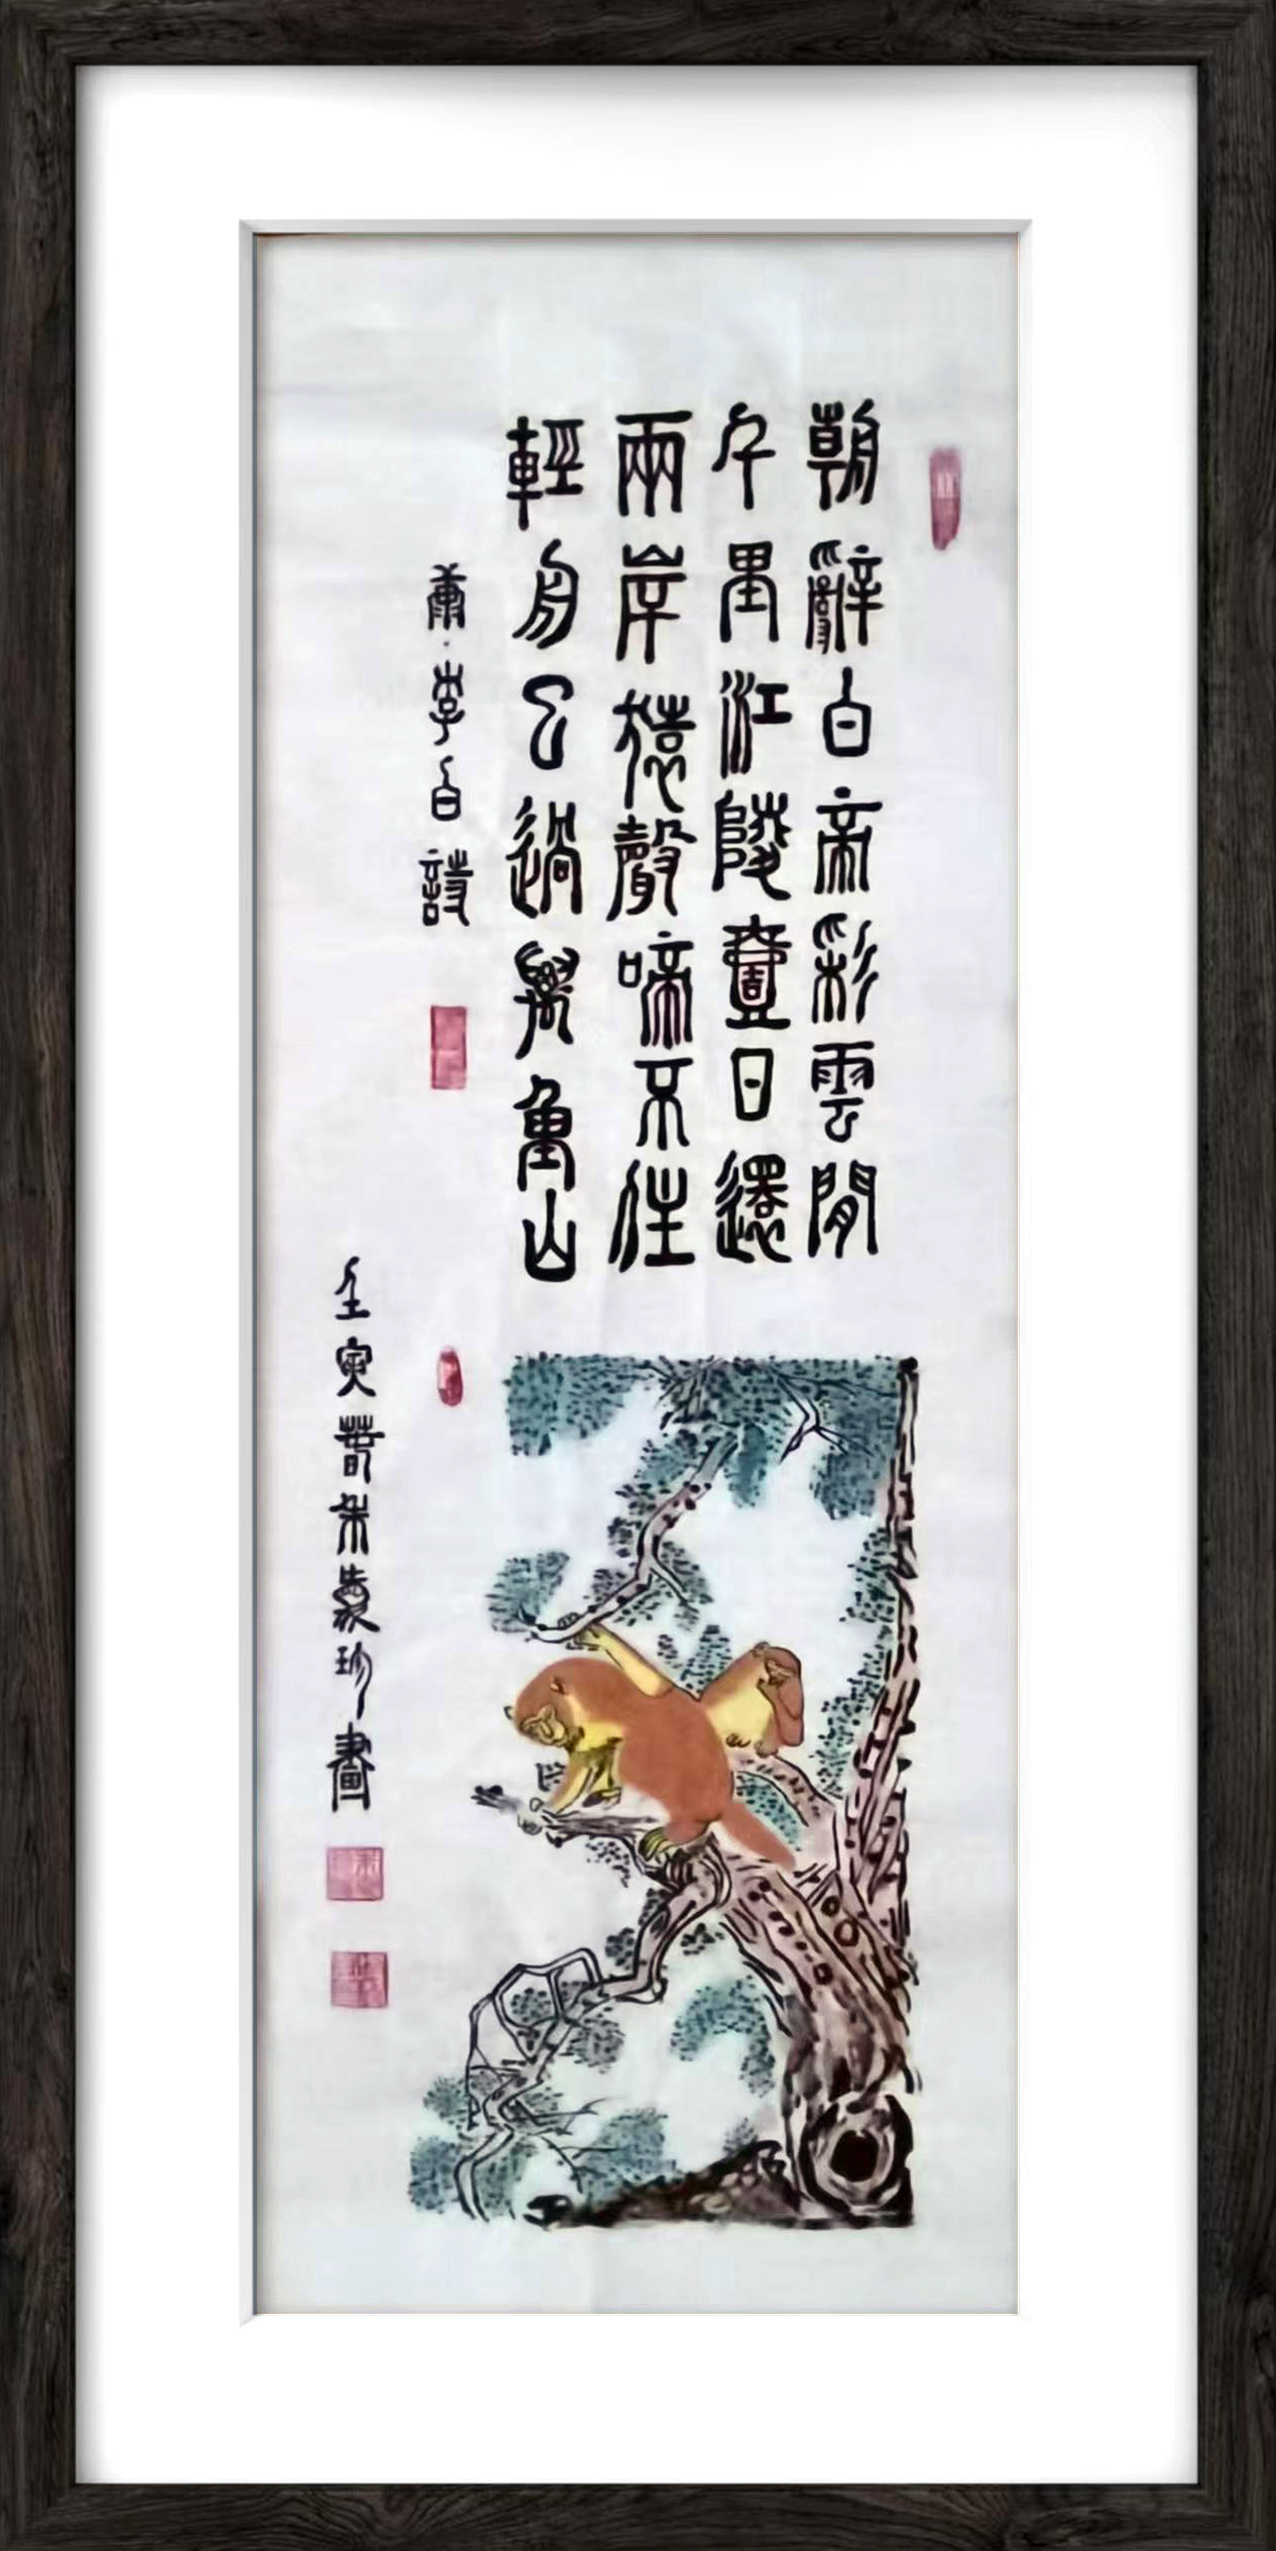 朝辭白帝彩雲閒
千里江陵壹日還
兩岸猿聲啼不住
輕舟已過萬重山
唐·李白詩
壬寅春朱珍畫